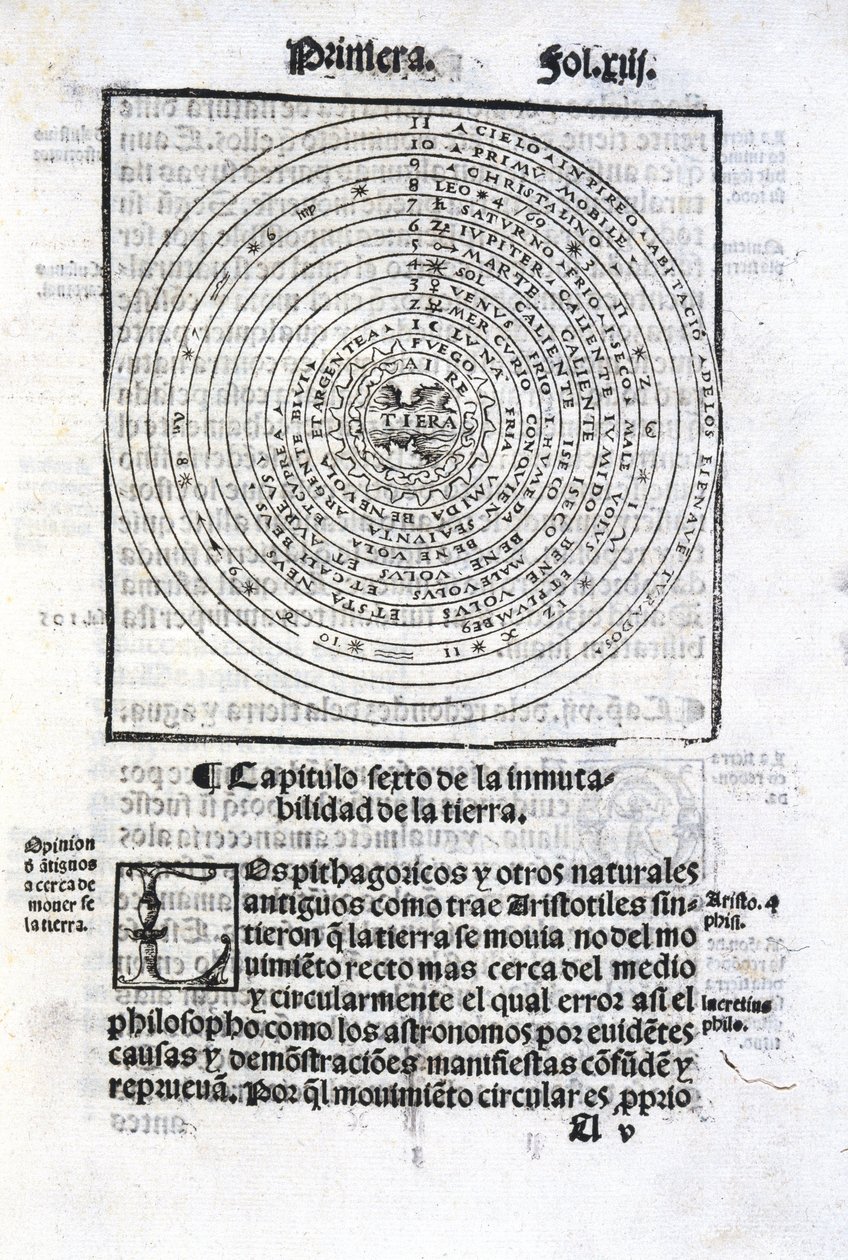 Primera.
Fol.xiij.
11 CIELO INPIREO ABITACIÕ DELOS BIENAVĒTURADOS
10 PRIMŨ MOBILE
9 CHRISTALINO
8 LEO 4 769
7 ♄ SATURNO FRIO I SECO MALE VOLUS ET PLUMBEꝰ
6 ♃ IVPITER CALIENTE I UMIDO BENE VOLUS ET STA NEUS
5 MARTE CALIENTE ISECO MALEVOLUS ET CALYBEUS
4 SOL CALIENTE ISECO BENE VOLUS ET AUREUS
3 ♀ VENUS FRIO I HUMEDA BENE VOLA ET CUPREA
2 ☿ MERCURIO CONQVIEN SEAIUNTA ARGENTE BIVI
1 LVNA FRIA UMIDA BENEVOLA ET ARGENTEA
FUEGO
AIRE
TIERA
¶ Capitulo sexto de la inmuta-
bilidad de la tierra.
Opinion
õ ãtiguos
acerca de
mouer se
la tierra.
LOs pithagoricos y otros naturales
antiguos como trae Aristotiles sin-
tieron q̃ la tierra se mouia no del mo
uimiẽto recto mas cerca del medio
y circularmente el qual error asi el
philosopho como los astronomos por euidẽtes
causas y demõstraciões manifiestas cõfũdẽ y
reprueuã. Por q̃l mouimiẽto circular es ꝓprio
Aristo. 4
phisi.
lucretius
philo.
A v